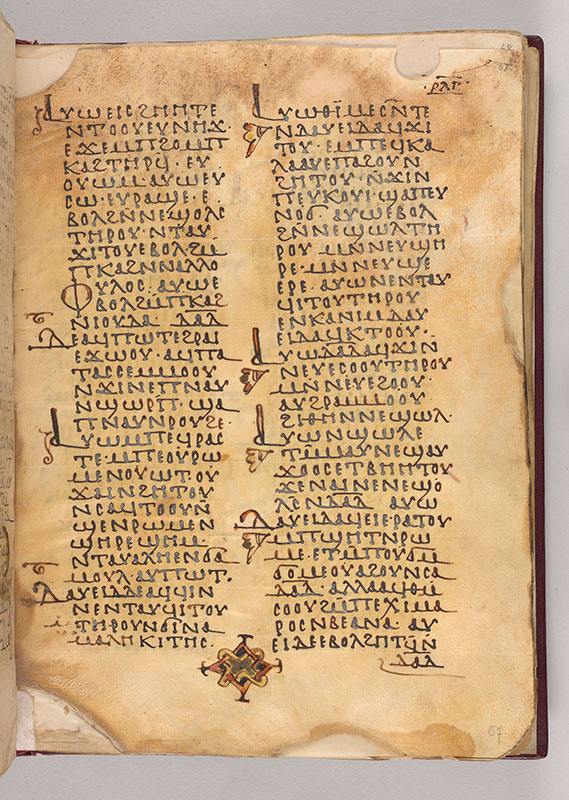 ⲣⲗⲅ
ⲁⲩⲱⲉⲓⲥϩⲏⲏⲧⲉ
ⲛⲧⲟⲟⲩⲉⲩⲛⲏϫ·
ⲉϫⲉⲙⲡϩⲟⲙⲡ
ⲕⲁϩⲧⲏⲣϥ· ⲉⲩ
ⲟⲩⲱⲙ·ⲁⲩⲱⲉⲩ
ⲥⲱ· ⲉⲩⲣⲁϣⲉ· ⲉ
ⲃⲟⲗϩⲛⲛⲉϣⲟⲗⲥ
ⲧⲏⲣⲟⲩ· ⲛⲧⲁⲩ
ϫⲓⲧⲟⲩⲉⲃⲟⲗϩⲙ
ⲡⲕⲁϩⲛⲛⲁⲗⲗⲟ
ⲫⲩⲗⲟⲥ· ⲁⲩⲱⲉ
ⲃⲟⲗϩⲙⲡⲕⲁϩ
ⲛⲓⲟⲩⲇⲁ· ⲇⲁⲇ
ⲇⲉⲁϥⲡⲱⲧⲉϩⲣⲁⲓ
ⲉϫⲱⲟⲩ· ⲁϥⲡⲁ
ⲧⲁⲥⲥⲉⲙⲙⲟⲟⲩ
ⲛϫⲓⲛⲉⲡⲛⲁⲩ
ⲛϣⲱⲣⲡ· ϣⲁ
ⲡⲛⲁⲩⲛⲣⲟⲩϩⲉ·
ⲁⲩⲱⲙⲡⲉϥⲣⲁⲥ
ⲧⲉ· ⲙⲡⲉⲟⲩⲣⲱ
ⲙⲉⲛⲟⲩⲱⲧ· ⲟⲩ
ϫⲁⲓⲛϩⲏⲧⲟⲩ
ⲛⲥⲁϥⲧⲟⲟⲩⲛ̄
ϣⲉⲛⲣⲱⲙⲉⲛ
ϣⲏⲣⲉϣⲏⲙ·
ⲛⲧⲁⲩⲁⲗⲉⲛϭⲁ
ⲙⲟⲩⲗ· ⲁⲩⲡⲱⲧ·
ⲇⲁⲩⲉⲓⲇⲇⲉⲁϥϥⲓⲛ
ⲛⲉⲛⲧⲁⲩϥⲓⲧⲟⲩ
ⲧⲏⲣⲟⲩⲛϭⲓⲛⲁ
ⲙⲁⲗⲏⲕⲓⲧⲏⲥ·
ⲁⲩⲱⲑⲓⲙⲉⲥⲛ̄ⲧⲉ
ⲛⲇⲁⲩⲉⲓⲇⲁϥϫⲓ
ⲧⲟⲩ· ⲉⲙⲡⲉϥⲕⲁ
ⲗⲁⲁⲩⲉⲡⲁϩⲟⲩⲛ
ϩⲏⲧⲟⲩ· ⲛ̄ϫⲓⲛ
ⲡⲉⲩⲕⲟⲩⲓ·ϣⲁⲡⲉⲩ
ⲛⲟϭ· ⲁⲩⲱⲉⲃⲟⲗ
ϩⲛⲛⲉϣⲱⲗⲧⲏ
ⲣⲟⲩ· ⲙⲛⲛⲉⲩϣⲏ
ⲣⲉ· ⲙⲛⲛⲉⲩϣⲉ
ⲉⲣⲉ· ⲁⲩⲱⲛⲉⲛⲧⲁⲩ
ϥⲓⲧⲟⲩⲧⲏⲣⲟⲩ
ⲉⲛⲕⲁⲛⲓⲙⲇⲁⲩ
ⲉⲓⲇⲁϥⲕⲧⲟⲟⲩ·
ⲁⲩⲱⲇⲁⲇⲁϥϫⲓⲛ
ⲛⲉⲩⲉⲥⲟⲟⲩⲧⲏⲣⲟⲩ
ⲙⲛⲛⲉⲩⲉϩⲟⲟⲩ·
ⲁⲩϩⲣⲁⲙⲙⲟⲟⲩ
ϩⲓⲑⲏⲛⲛⲉϣⲱⲗ·
ⲁⲩⲱⲛϣⲱⲗⲉ
ⲧⲙⲙⲁⲩⲛⲉϣⲁⲩ
ϫⲟⲟⲥⲉⲧⲃⲏⲏⲧⲟⲩ
ϫⲉⲛⲁⲓⲛⲉⲛⲉϣⲟ
ⲗⲉⲛⲇⲁⲇ ⲁⲩⲱ
ⲇⲁⲩⲉⲓⲇⲁϥⲉⲓⲉⲣⲁⲧⲟⲩ
ⲙⲡϣⲏⲧⲛⲣⲱ
ⲙⲉ·ⲉⲧⲙⲡⲟⲩϭⲙ
ϭⲟⲙⲉⲟⲩⲁϩⲟⲩⲛⲥⲁ
ⲇⲁⲇ· ⲁⲗⲗⲁⲁϥⲑⲙ
ⲥⲟⲟⲩϩⲙⲡⲉⲭⲓⲙⲁ
ⲣⲟⲥⲛⲃⲉⲁⲛⲁ· ⲁⲩ
ⲉⲓⲇⲉⲉⲃⲟⲗϩⲏⲧϥ̄ⲛ
ⲇⲁⲇ
67